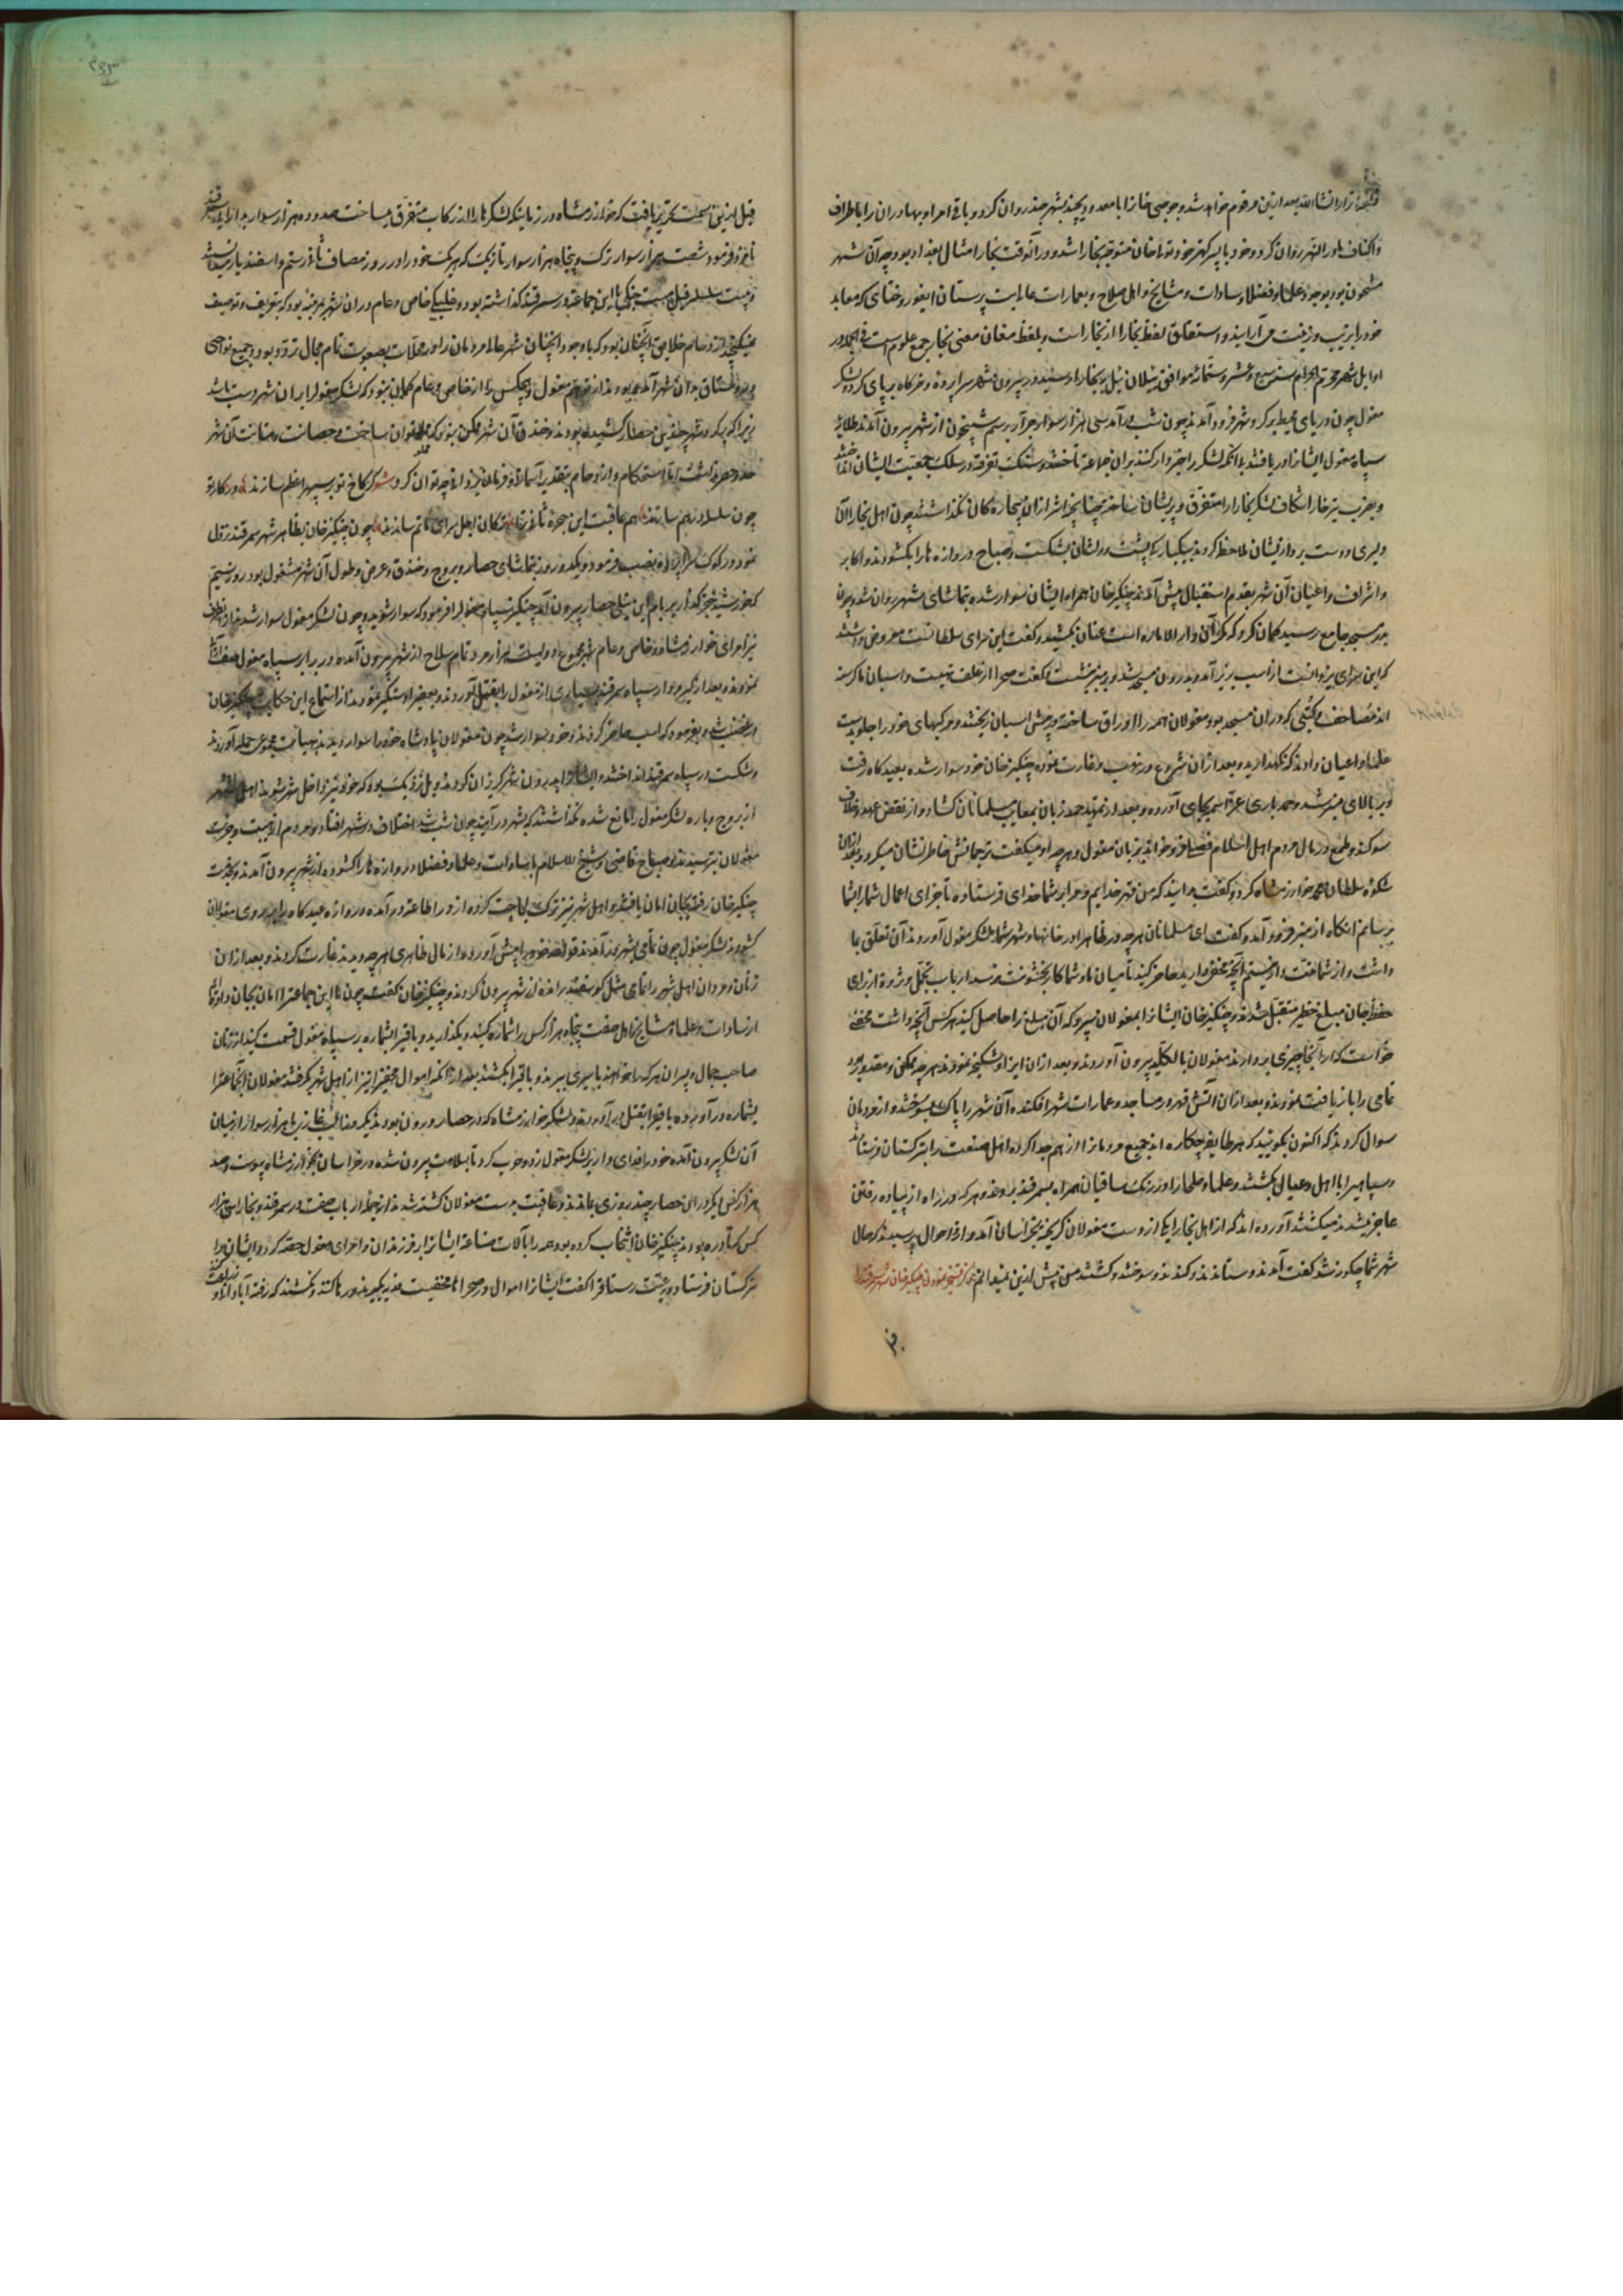 قرار انشاء الله بعد ازین مرقوم خواهد شد و جوجی خان را با معدودی چند بشهر جند روان کرد و باقی امرا و بهادران را باطراف
و اکناف ماورالنهر روان کرد و خود با پسر کهتر خود تولی خان متوجه بخارا شد و در آنوقت بخارا مثال بغداد بود چه آن شهر
مشحون بود بوجود علما و فضلا و سادات و مشایخ و اهل صلاح و بعمارات عالی بت پرستان ایغور و ختای که معابد
خود را بزیب و زینت می آرایند و اشتقاق لفظ بخارا از بخار است و بلفظ مغان معنی بخار جمع علوم است فی الجمله در
اوایل شهر محرم الحرام سنه سبع و عشر و ستمائه موافق ئیلان ئیل به بخارا رسید و در بیرون شهر سراپرده و خرگاه بر پای کرد و لشکر
مغول چون دریای محیط بر گرد شهر فرود آمدند چون شب در آمد سی هزار سوار جرار برسم شبیخون از شهر بیرون آمدند طلایه
سپاه مغول ایشانرا دریافتند با آنکه لشکر را خبردار کنند بران جماعت تاختند و سنگ تفرقه در سلک جمعیت ایشان انداختند
و بضرب تیر خارا شکاف لشکر بخارا را متفرق و پریشان ساختند چنانچه اثر ازان بیچاره کان نگذاشتند چون اهل بخارا آن
دلیری و دست برد از ایشان ملاحظه کردند بیکبارگی پشت دولشان بشکست و صباح دروازه ها را بکشودند و اکابر
و اشراف و اعیان آن شهر بقدم استقبال پیش آمدند چنگیز خان همراه ایشان سوار شده بتماشای شهر روان شد و چون
بدر مسجد جامع رسید گمان کرد که مگر آن دار الاماره است عنان بکشید و گفت این سرای سلطانست معروض داشتند
که این سرای یزدانست از اسب بزیر آمد و بدرون مسجد شد و بر منبر نشست و گفت صحرا از علف تهیست و اسبان ما گرسنه
اند مصاحف و کتبی که دران مسجد بود مغولان همه را اوراق ساخته در پیش اسبان ریختند و مرکبهای خود را جلو بدست
علما و اعیان دادند که نگهدارید و بعد ازان شروع در نهب و غارت نموده چنگیز خان خود سوار شده بعیدگاه رفت
و بر بالای منبر شد و حمد باری عز اسمه بجای آورد و بعد از تمهید حمد زبان بمعایب مسلمانان کشاد و از نقض عهد و خلاف
سوگند و طمع در مال مردم اهل اسلام فصلی خواند بزبان مغول و هر چه او میگفت ترجمانش خاطرنشان میکرد و بعد ازان
شکوه سلطان محمد خوارزمشاه کرد و گفت بدانید که من قهر خدایم و مرا بر شما خدای فرستاده تا جزای اعمال شما را بشما
برسانم انگاه از منبر فرود آمد و گفت ای مسلمانان هر چه در ظاهر در خانها و شهر شما بلشکر مغول آوردند آن تعلق بما
داشت و از شما نیست دانستیم آنچه مخفی دارید حاضر کنید تا میان ما و شما کار بخشونت نرسد ارباب تجمل و ثروة از برای
حفظ جان مبلغ خطیر متقبل شدند و چنگیز خان ایشانرا بمغولان سپرد که آن مبلغ را حاصل کنید هر کس آنچه داشت مخفی
خواست که از انجا چیزی بردارند مغولان بالکلیه بیرون آوردند و بعد ازان ایزا و شکنجه نمودند هر چه ممکن و مقدور بود
تمامی را بازیافت نمودند و بعد ازان آتش قهر در مساجد و عمارات شهر افکنده آن شهر را پاک بسوختند و از مردمان
سوال کردند که اکنون بگویید که هر طایفه چکاره اند جمیع مردمانرا از هم جدا کرده اهل صنعت را بترکستان فرستادند
و سپاهیرا با اهل و عیال بکشتند و علما و صلحا را در رنگ ساقیان همراه بسمرقند بردند و هر که در راه از پیاده رفتن
عاجز میشد میکشتند آورده اند که از اهل بخارا یکی از دست مغولان گریخته بخراسان آمد و از احوال پرسیدند که حال
شهر شما چگونه شد گفت آمدند و ستاندند و کندند و سوختند و کشتند من پیش ازین نمیدانم ذکر فتح نمودن چنگیز خان شهر سمرقند را
قبل ازین سمت تحریر یافت که خوارزمشاه در زمانیکه لشکرها را از رکاب متفرق میساخت صد و ده هزار سوار برای سمرقند
نامزد فرمود شصت هزار سوار ترک و پنجاه هزار سوار تازیک که هر یک خود را در روز مصاف ثانی رستم و اسفندیار میدانستند
و بیست سلسله فیل مست جنگی با این جماعت در سمرقند گذاشته بود و خلیکی خاص و عام دران شهر بمرتبه بود که بتعریف و توصیف
نمیگنجد ازدحام خلایق آنچنان بود که با وجود آنچنان شهر عالی مردمان را در محلات بصعوبت تمام مجال تردد بود و جمیع نواحی
و رستاق بدان شهر آمده بودند از توهم مغول و هیچکس را از خاص و عام گمان نبود که لشکر مغول را بران شهر دست باشد
زیرا که بر گرد شهر چندین حصار کشیده بودند و خندق آن شهر ممکن نبود که مملو توان ساخت و حصانت و متانت آن شهر
حد و حصر نداشت اما استحکام و ازدحام بتقدیر آسمانی و فرمان یزدانی چه توان کرد شعر گر کاخ تو بر سپهر اعظم سازند در کار تو
چون سلسله در هم سازند هم عاقبت این حجره تا تمرا کان اجل سرای ماتم سازند چون چنگیز خان بظاهر شهر سمرقند نزول
نمود در کوک سرا پرده نصب فرمود و یکدو روز بتماشای حصار و بروج و خندق و عرض و طول آن شهر مشغول بود روز سیم
که خورشید خنجرگذار بر بام این نیلی حصار بیرون آمد چنگیز سپاه مغول را فرمود که سوار شوید و چون لشکر مغول سوار شدند از انطرف
نیز امرای خوارزمشاه و خاص و عام شهر مجموع دویست هزار مرد تمام سلاح از شهر بیرون آمده در برابر سپاه مغول صف آرا
نمودند و بعد از گیر و دار سپاه سمرقند بسیاری از مغول را بقتل آوردند و بعضی را دستگیر نمودند از استماع این حکایت چنگیز خان
در غضب شد و بفرمود که اسب حاضر کردند و خود سوار شد چون مغولان پادشاه خود را سوار دیدند بهیات مجموعی حمله آوردند
و شکست در سپاه سمرقند انداختند و ایشانرا بدرون شهر گریزان کردند و بل نزدیک بود که خود نیز داخل شهر شوند اهل شهر
از بروج و باره لشکر مغول را مانع شده نگذاشتند که بشهر در آیند چون شب شد اختلاف در شهر افتاد و مردم از هیبت و جرات
مغولان بترسیدند و صباح قاضی و شیخ الاسلام با سادات و علما و فضلا دروازه ها را کشوده از شهر بیرون آمدند و بخدمت
چنگیز خان رفته بجان امان یافتند و اهل شهر نیز ترک لجاجت کرده از در اطاعت در آمده دروازه عیدگاه را بر روی مغولان
کشودند لشکر مغول چون تمامی بشهر در آمدند قول خود بجا پیش آورده از مال ظاهری هر چه دیدند غارت کردند و بعد ازان
زنان و مردان اهل شهر را تمامی مثل گوسفند رانده از شهر بیرون کردند و چنگیز خان گفت چون ما این جماعت را امان بجان دادیم
از سادات و علما و مشایخ و اهل صنعت پنجاه هزار کس را شماره کنید و بگذارید و باقی را بشماره بر سپاه مغول قسمت کنید از زنان
صاحب جمال و پسران هر که را خواهند باسیری ببرند و باقی را بکشند بعد از آنکه اموال مخفی را نیز از اهل شهر بگرفتند مغولان آنجماعت را
بشماره در آورده باقی را بقتل در آوردند و لشکر خوارزمشاه که در حصار درون بودند یکروز الب خان با هزار سوار از میان
آن لشکر بیرون آمده خود را فدای وار بر لشکر مغول زد و حرب کرد تا بسلامت بیرون شده در خراسان بخوارزمشاه پیوست و صد
هزار کس دیگر دران حصار چند روزی بماندند و عاقبت بدست مغولان کشته شدند از جمله ارباب صنعت در سمرقند و بخارا سی هزار
کس گرد آورده بودند چنگیز خان انتخاب کرده بود همه را با آلات صناعت ایشانرا بر فرزندان و امرای مغول حصه کرد و ایشان همه را
بترکستان فرستاد و رعیت رستاقرا گفت ایشانرا اموال در صحرا مخفیست عذر بگیرند و رها کنند و گفتند که رفته آبادانی